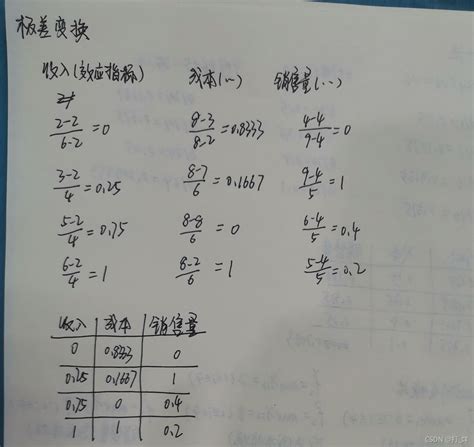 极差变换
收入(效应指标) 成本(…) 销售量(…)
2-2/6-2=0 8-3/8-2=0.8333 4-4/9-4=0
3-2/4=0.25 8-7/6=0.1667 9-4/5=1
5-2/4=0.75 8-8/6=0 6-4/5=0.4
6-2/4=1 8-2/6=1 5-4/5=0.2
收入 成本 销售量
0 0.8333 0
0.25 0.1667 1
0.75 0 0.4
1 1 0.2